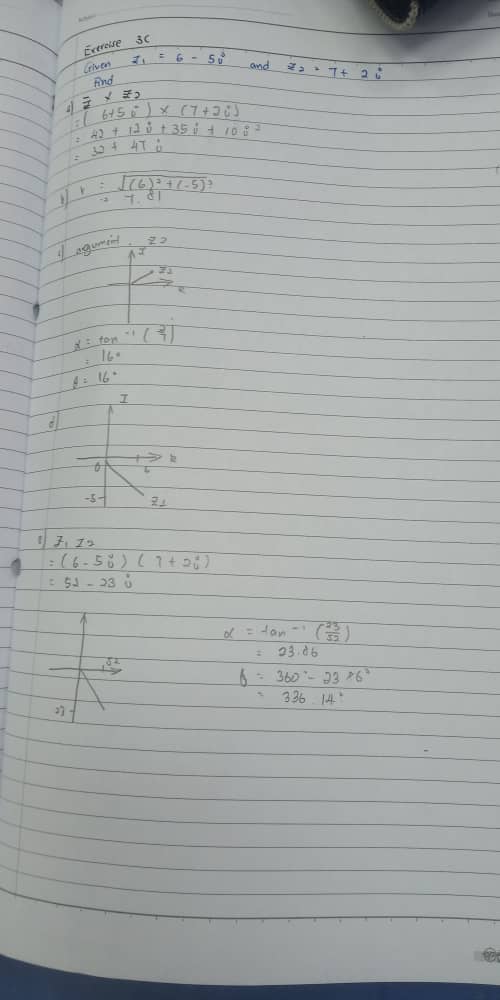 Exercise 3C
Given z₁ = 6 - 5i and z₂ = 7 + 2i
Find
a) z̄ × z₂
= (6+5i) × (7+2i)
= 42 + 12i + 35i + 10i²
= 32 + 47i
b) r = √(6)² + (-5)²
= 7.81
c) argument z₂
I
z₂
R
α = tan⁻¹ (2/7)
= 16°
θ = 16°
d) I
0 6 R
-5 z₁
e) z₁ z₂
= (6 - 5i) (7 + 2i)
= 52 - 23i
52
23
α = tan⁻¹ (23/52)
= 23.86
θ = 360° - 23.86°
= 336.14°